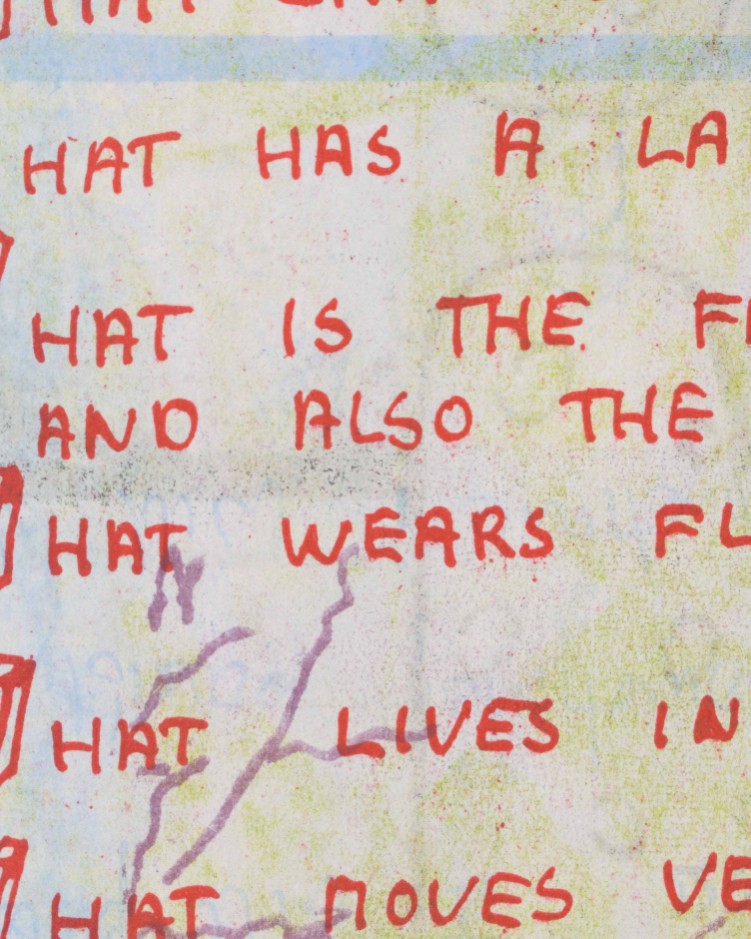 HAT HAS A LA
HAT IS THE F
AND ALSO THE
HAT WEARS FL
HAT LIVES IN
HAT MOVES VE